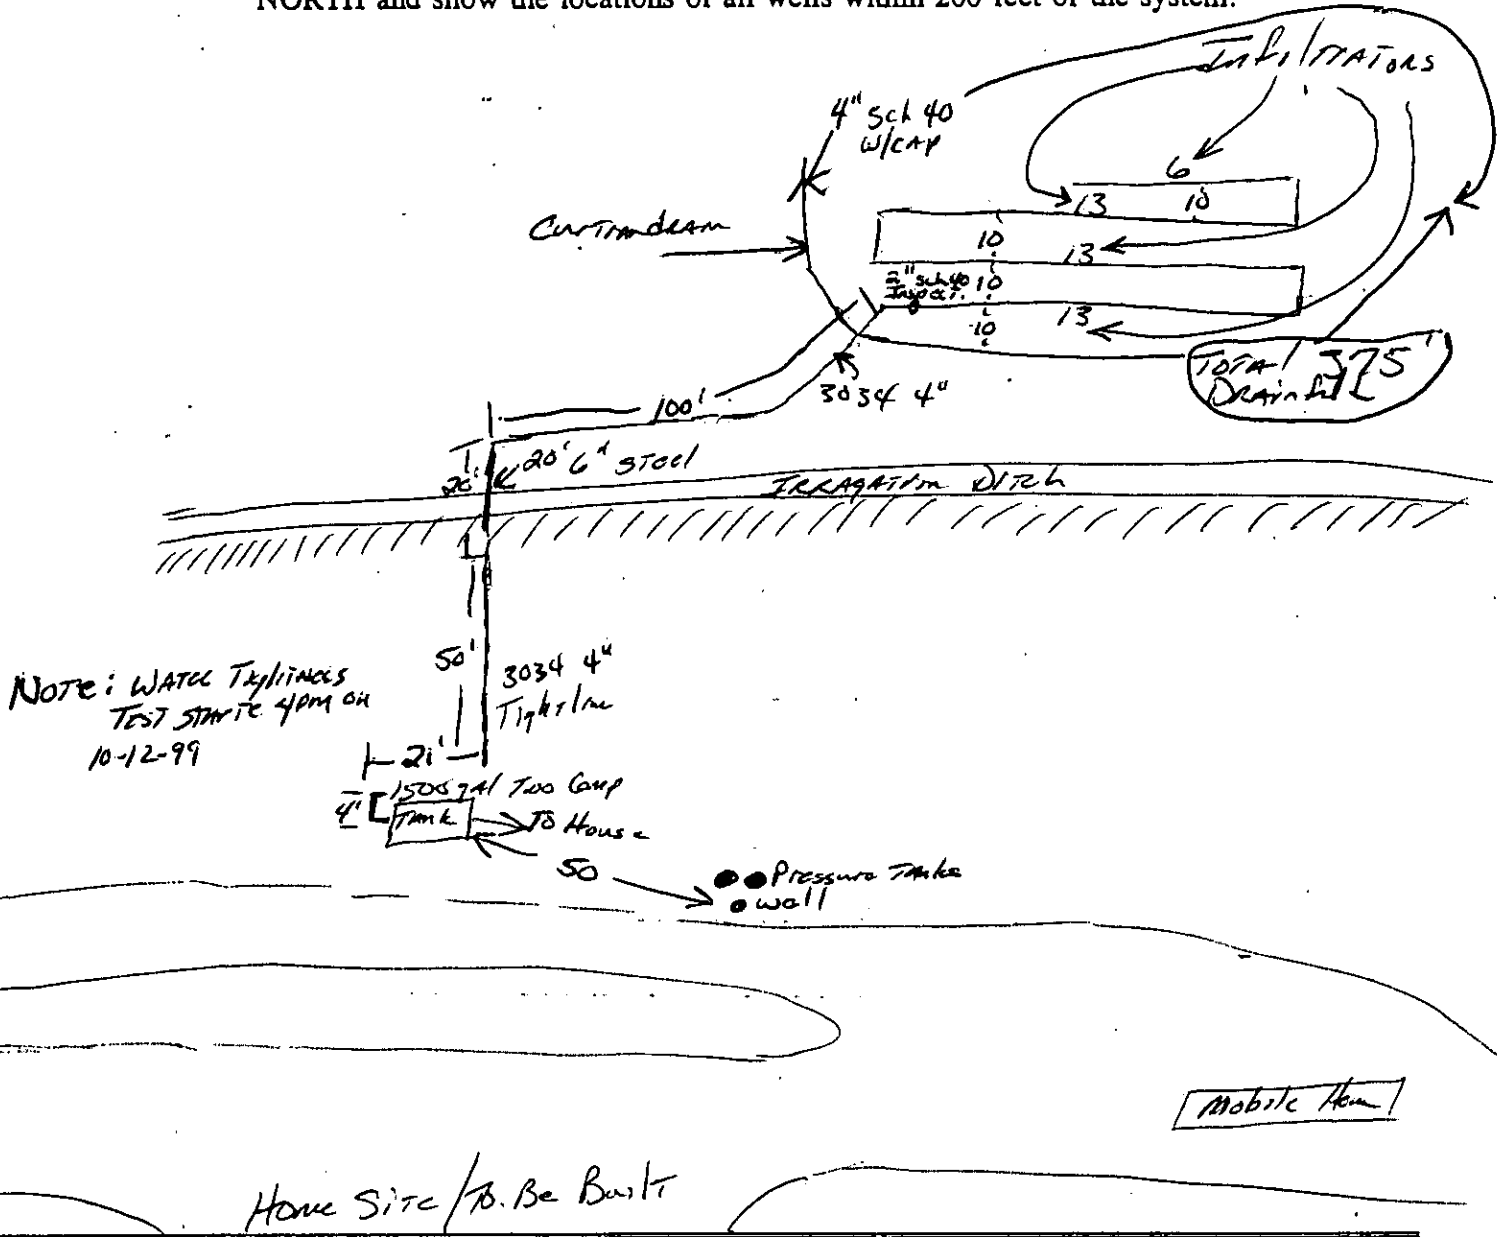 NORTH and show the locations of all wells within 200 feet of the system.
Infiltrators
4" Sch 40
W/CAP
6
13 10
Curtaindrain
10
13
2" sch 40
Inspect.
10
13
10
Total 375'
Drainfield
3034 4"
100'
20' 6" Steel
20'
Irragation Ditch
50'
3034 4"
Tightline
NOTE: WATER
TEST 4pm on
10-12-99
21'
1500 gal Two Comp
4'
Tank
To House
50
Pressure Tanks
well
Mobile Home
Home Site/To Be Built